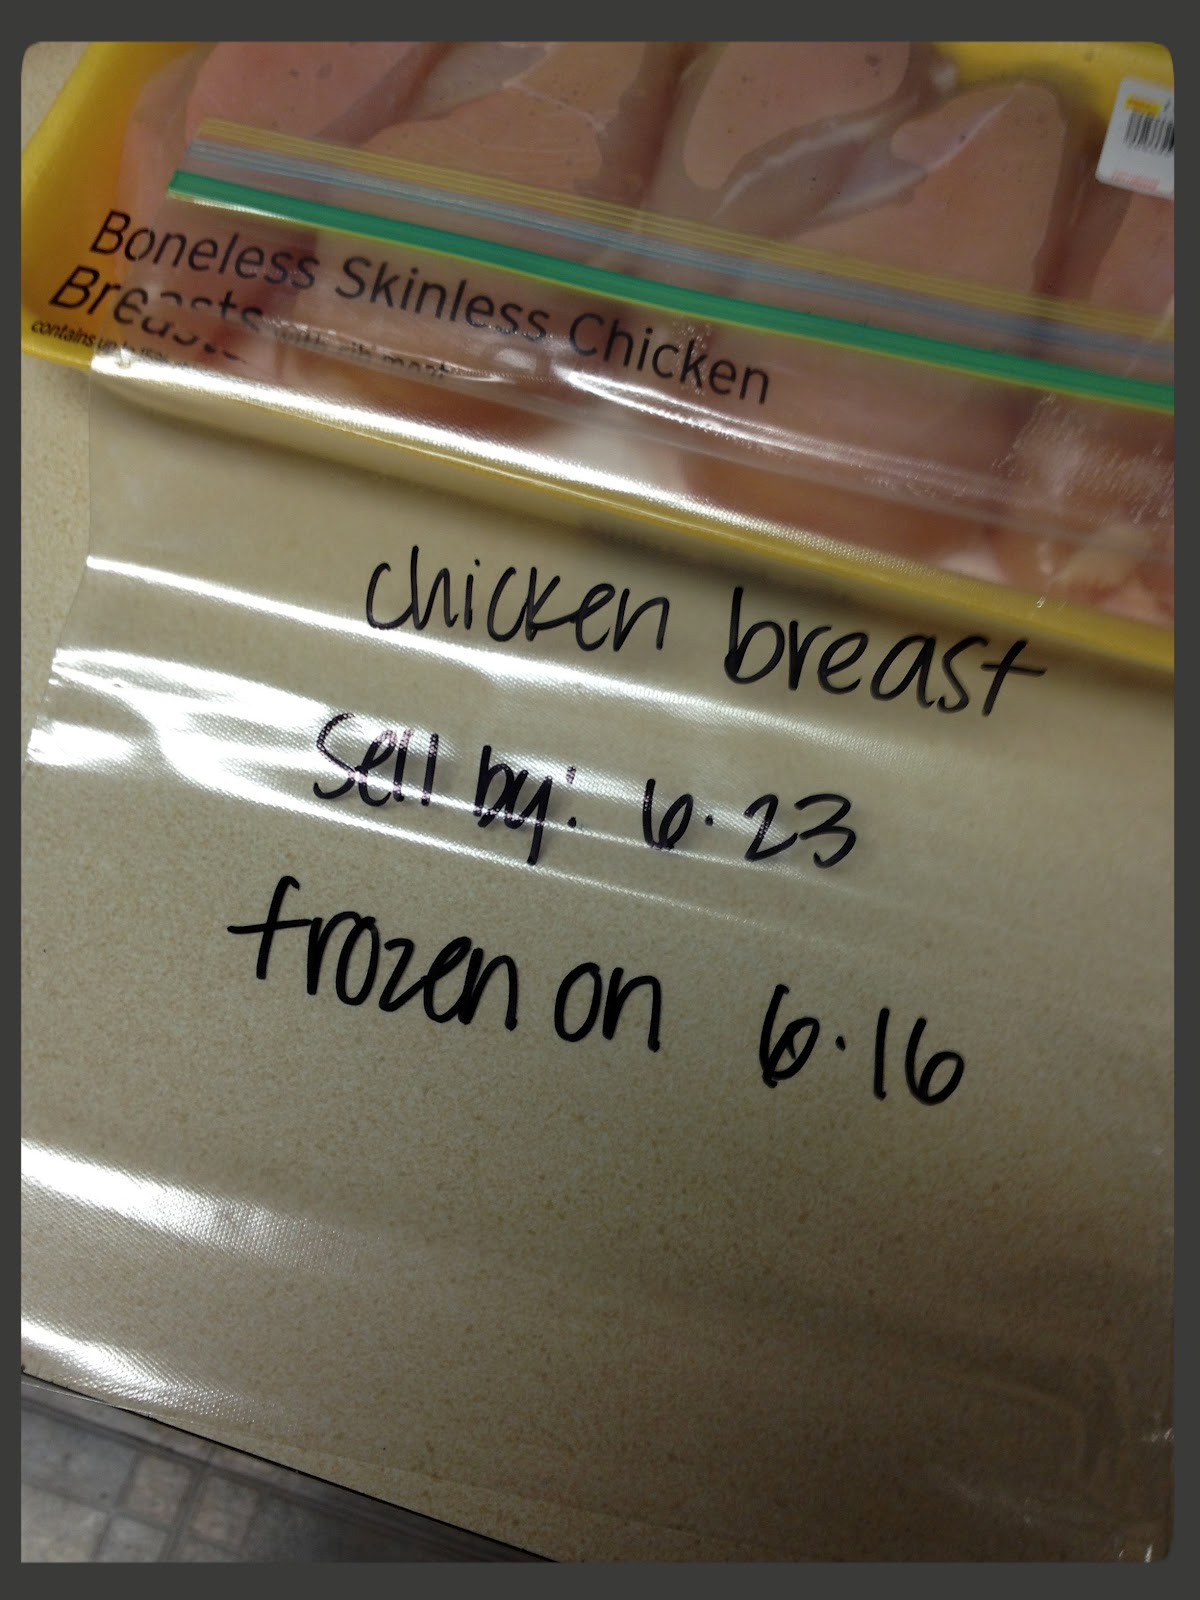 Boneless Skinless Chicken
Breasts with rib meat
contains up to 15%
chicken breast
sell by: 6.23
frozen on 6.16